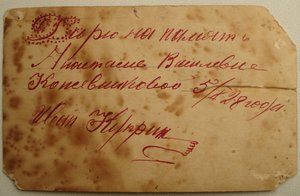 Дарю на память
Анастасие Василевне
Кожевниковой 5/X 28 года.
Иван